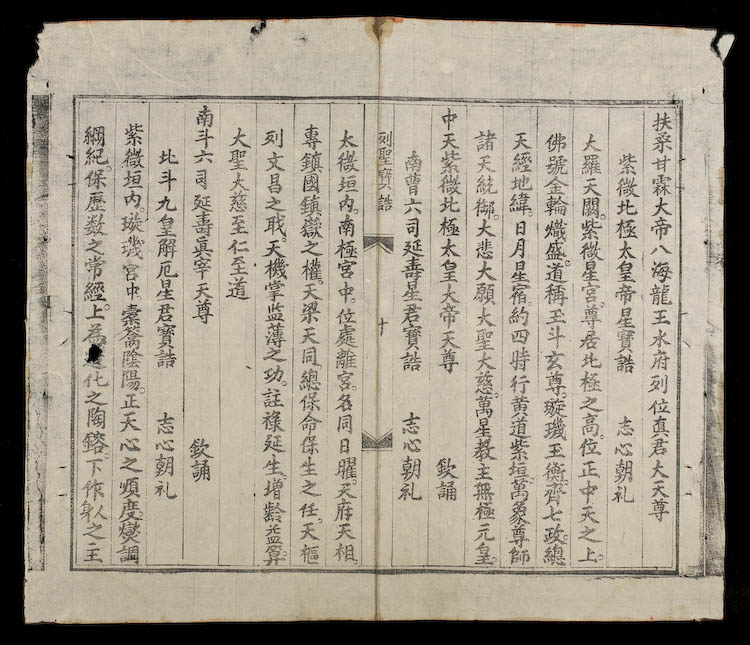 扶桑甘霖大帝八海龍王水府列位真君大天尊
紫微北極太皇帝星寶誥　志心朝礼
大羅天闕。紫微星宮。尊居北極之高。位正中天之上。
佛號金輪熾盛。道稱玉斗玄尊。璇璣玉衡齊七政。總
天經地緯。日月星宿。約四時行黄道紫垣。萬象尊師
諸天統御。大悲大願大聖大慈。萬星教主無極元皇。
中天紫微北極太皇大帝天尊　欽誦
南曹六司延壽星君寶誥　志心朝礼
列聖寶誥　十
太微垣内。南極宮中。位處離宮。各同日曜。天府天相。
專鎮國鎮嶽之權。天梁天同。總保命保生之任。天樞
列文昌之職。天機掌監薄之功。註祿延生。增齡益算
大聖大慈至仁至道
南斗六司延壽真宰天尊　欽誦
北斗九皇解厄星君寶誥　志心朝礼
紫微垣内。璇璣宮中。橐籥陰陽。正天心之順度。燮調
綱紀。保歷数之常經。上為造化之陶鎔。下作之主